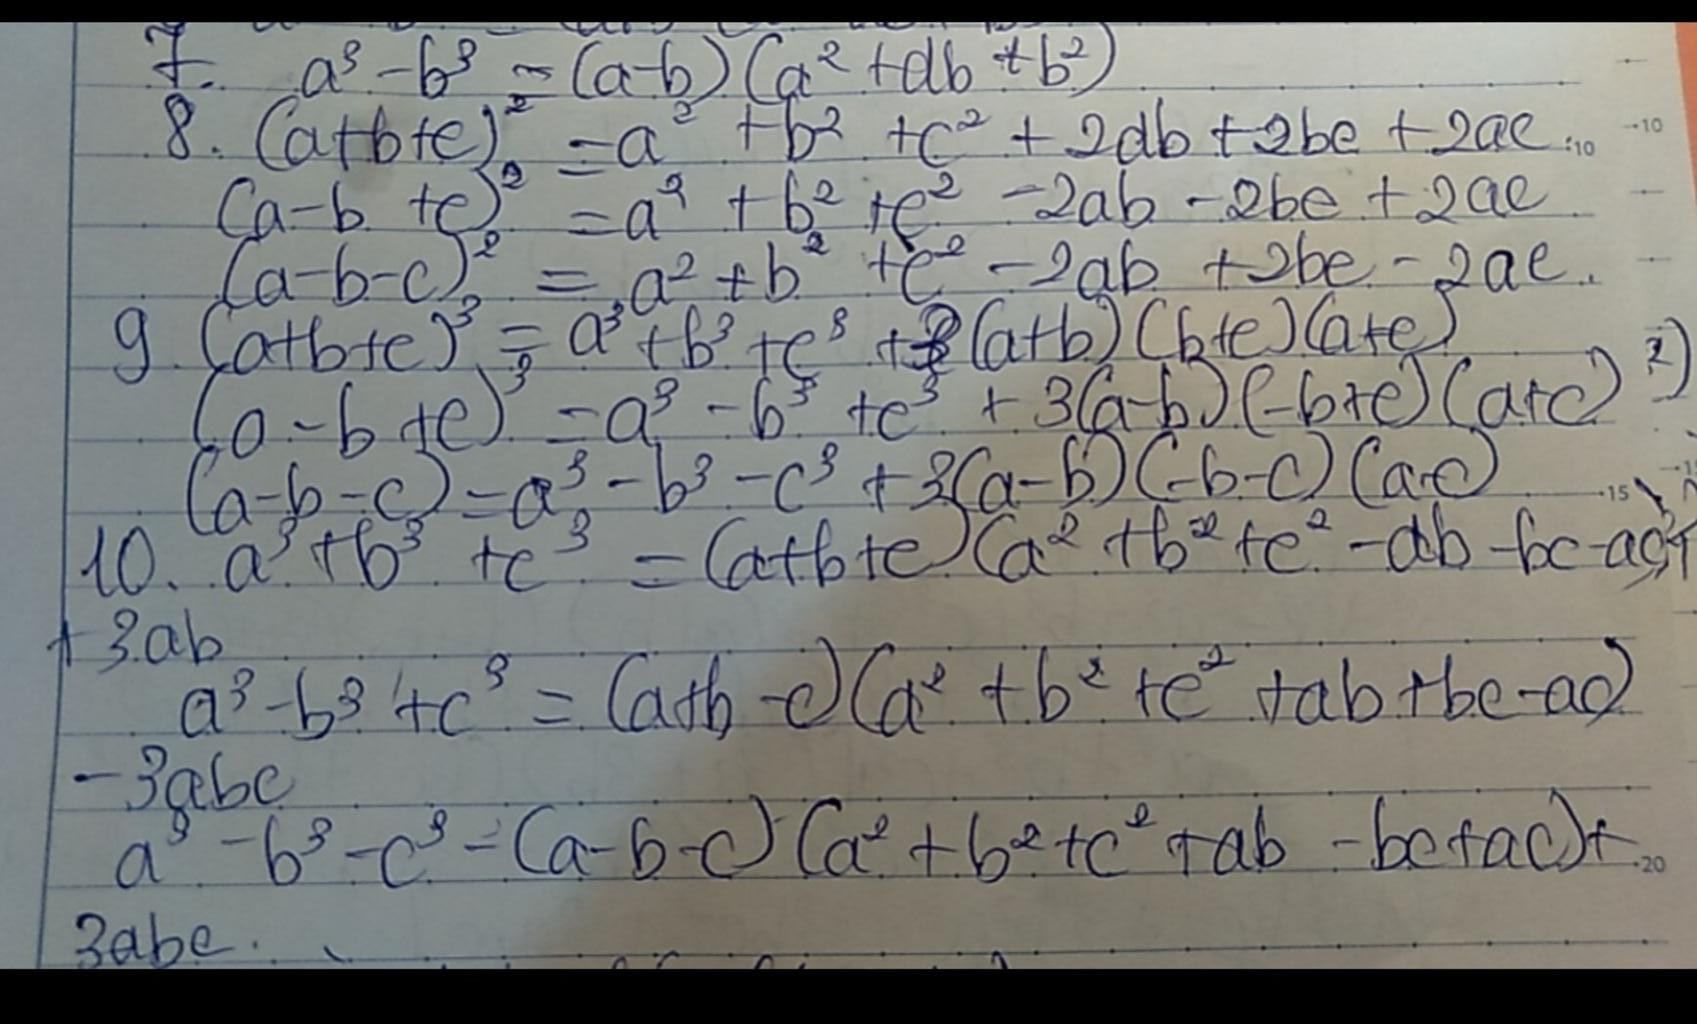 7. a³ - b³ = (a-b)(a² + ab + b²)
8. (a+b+c)² = a² + b² + c² + 2ab + 2bc + 2ac.
(a-b+c)² = a² + b² + c² - 2ab - 2bc + 2ac
(a-b-c)² = a² + b² + c² - 2ab + 2bc - 2ac.
9. (a+b+c)³ = a³ + b³ + c³ + 3(a+b)(b+c)(a+c)
(a-b+c)³ = a³ - b³ + c³ + 3(a-b)(-b+c)(a+c)
(a-b-c) = a³ - b³ - c³ + 3(a-b)(-b-c)(a-c)
10. a³ + b³ + c³ = (a+b+c)(a² + b² + c² - ab - bc - ac)+
+ 3ab
a³ - b³ + c³ = (a+b-c)(a² + b² + c² + ab + bc - ac)
- 3abc
a³ - b³ - c³ = (a-b-c)(a² + b² + c² + ab - bc + ac)+
3abc.